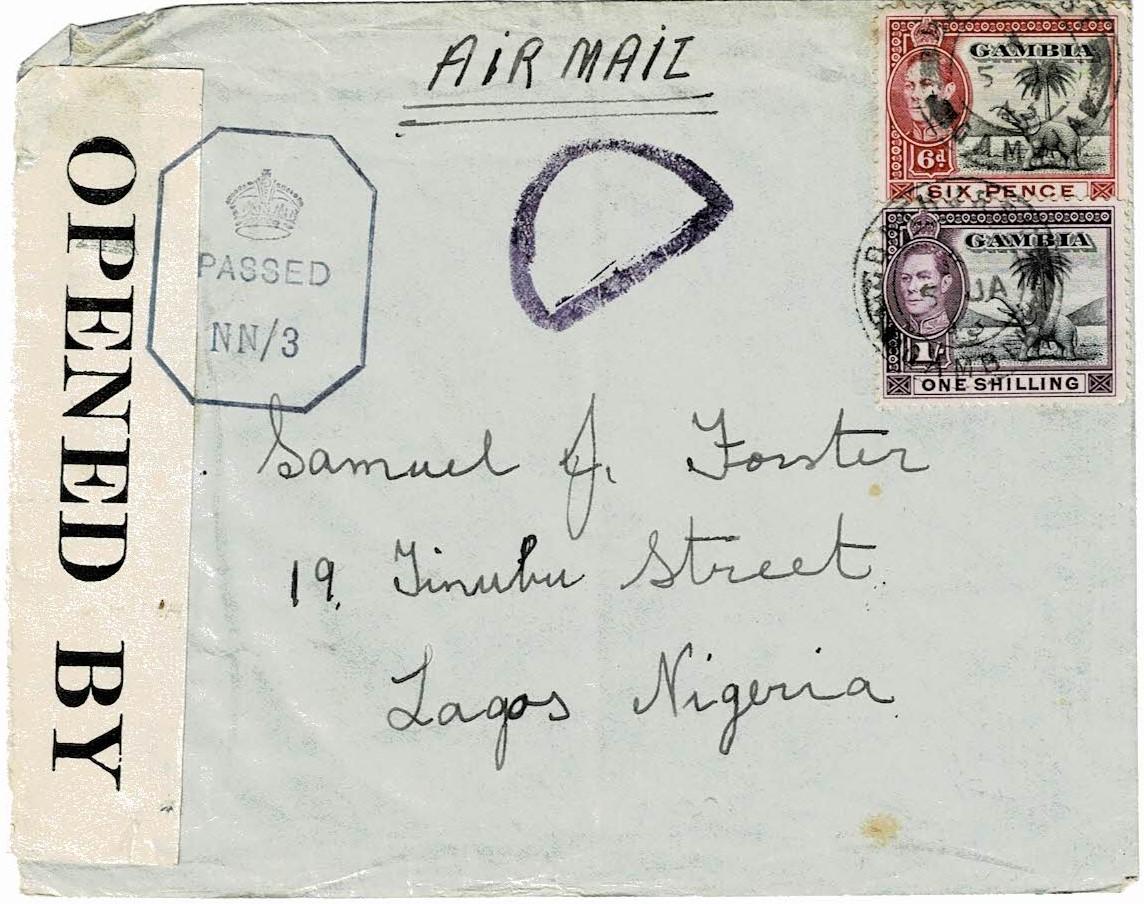 AIR MAIL
GAMBIA
6d
SIX PENCE
GAMBIA
5 JA
1/-
ONE SHILLING
OPENED BY
PASSED
NN/3
Samuel J. Forster
19, Tinubu Street.
Lagos Nigeria